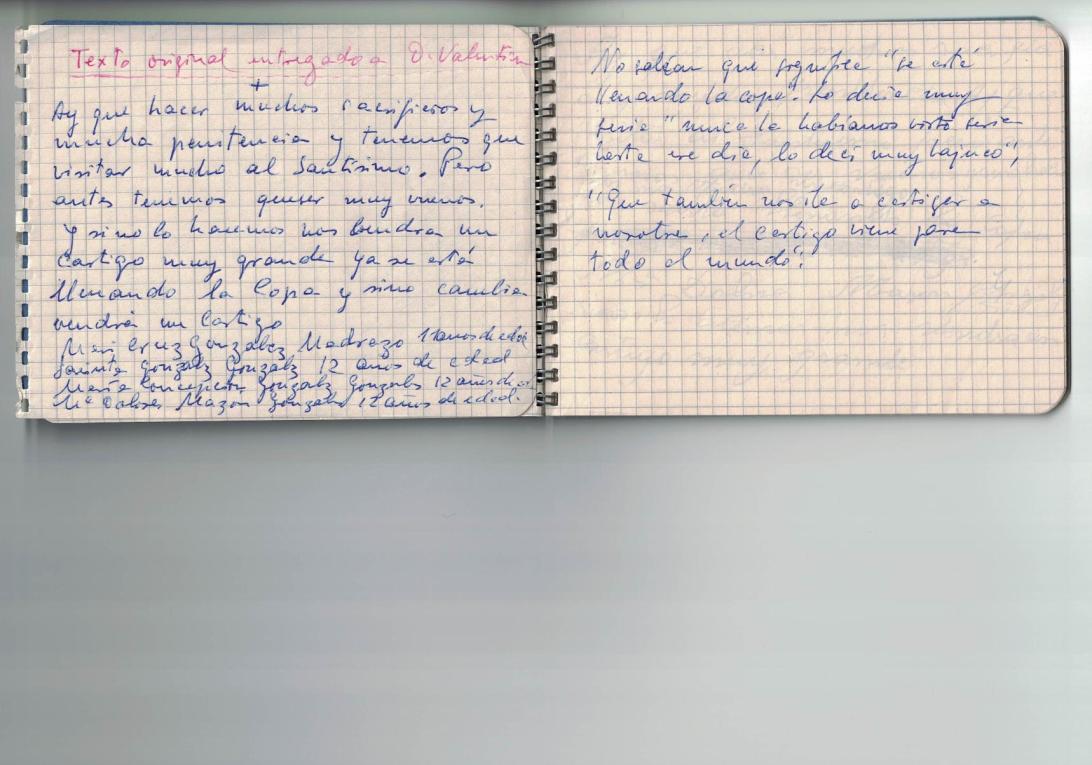 Texto original entregado a D. Valentín
+
Ay que hacer muchos sacrificios y
mucha penitencia y tenemos que
visitar mucho al Santísimo. Pero
antes tenemos que ser muy vuenos.
Y si no lo hacemos nos bendra un
castigo muy grande ya se está
llenando la Copa y sino cambia
vendrá un Castigo
Mari Cruz Gonzalez Madrazo 11 anos de edad
Jacinta Gonzalz Gonzalz 12 años de edad
María Concepción Gonzalz Gonzalez 12 años de
Mª Dolores Mazón Gonzalez 12 años de edad.
No sabían que significa "se está
llenando la copa". Lo decía muy
seria "nunca la habíamos visto seria
hasta ese día, lo deci muy bajuco",
"Que también nos iba a castigar a
nosotras, el castigo viene para
todo el mundo".